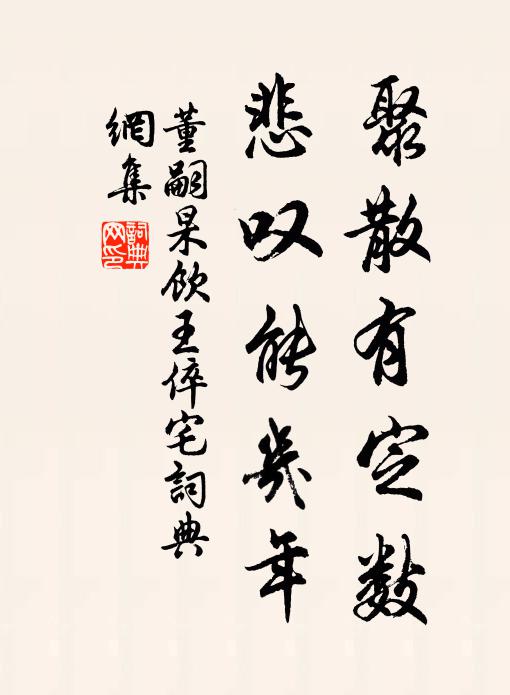 聚散有定数
悲叹能几年
董嗣杲饮王倅宅詞典
網集
詞典
网印